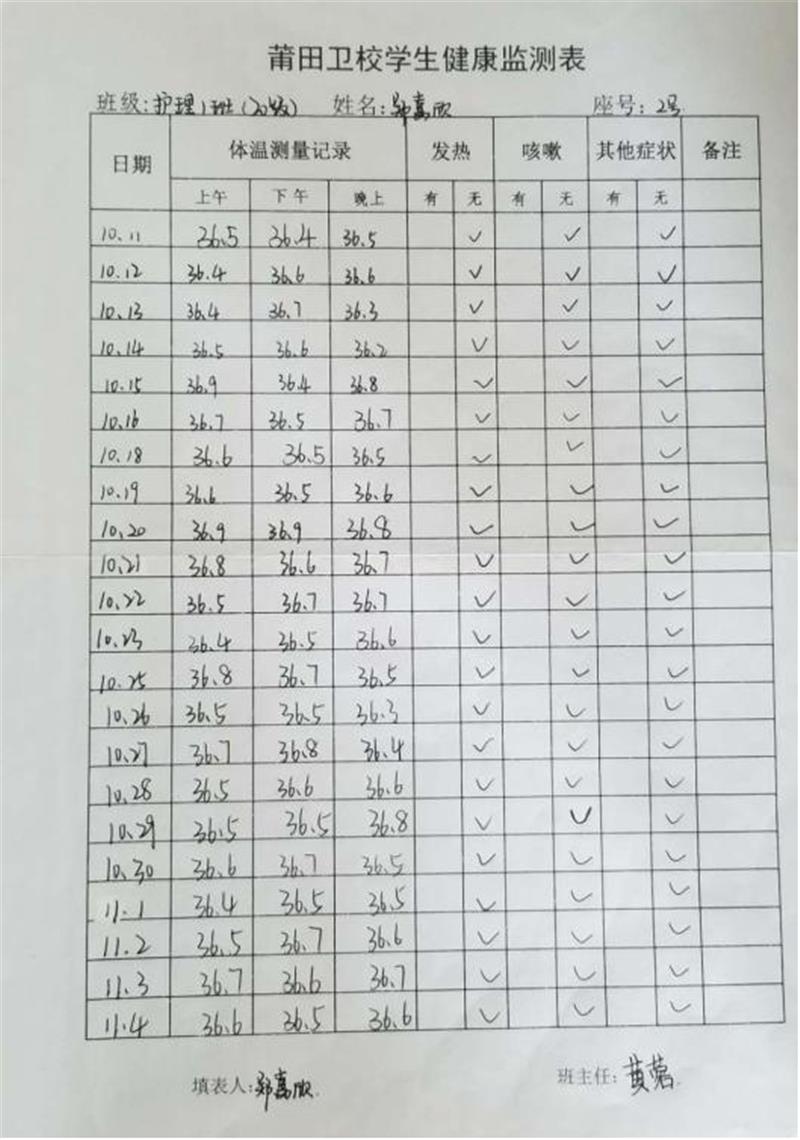 莆田卫校学生健康监测表
班级:护理1班(20级) 姓名:郑嘉欣 座号:2号
日期 体温测量记录 发热 咳嗽 其他症状 备注
上午 下午 晚上 有 无 有 无 有 无
10.11 36.5 36.4 36.5 ✓ ✓ ✓
10.12 36.4 36.6 36.6 ✓ ✓ ✓
10.13 36.4 36.7 36.3 ✓ ✓ ✓
10.14 36.5 36.6 36.2 ✓ ✓ ✓
10.15 36.9 36.4 36.8 ✓ ✓ ✓
10.16 36.7 36.5 36.7 ✓ ✓ ✓
10.18 36.6 36.5 36.5 ✓ ✓ ✓
10.19 36.6 36.5 36.6 ✓ ✓ ✓
10.20 36.9 36.9 36.8 ✓ ✓ ✓
10.21 36.8 36.6 36.7 ✓ ✓ ✓
10.22 36.5 36.7 36.7 ✓ ✓ ✓
10.23 36.4 36.5 36.6 ✓ ✓ ✓
10.25 36.8 36.7 36.5 ✓ ✓ ✓
10.26 36.5 36.5 36.3 ✓ ✓ ✓
10.27 36.7 36.8 36.4 ✓ ✓ ✓
10.28 36.5 36.6 36.6 ✓ ✓ ✓
10.29 36.5 36.5 36.8 ✓ ✓ ✓
10.30 36.6 36.7 36.5 ✓ ✓ ✓
11.1 36.4 36.5 36.5 ✓ ✓ ✓
11.2 36.5 36.7 36.6 ✓ ✓ ✓
11.3 36.7 36.6 36.7 ✓ ✓ ✓
11.4 36.6 36.5 36.6 ✓ ✓ ✓
填表人:郑嘉欣 班主任:黄